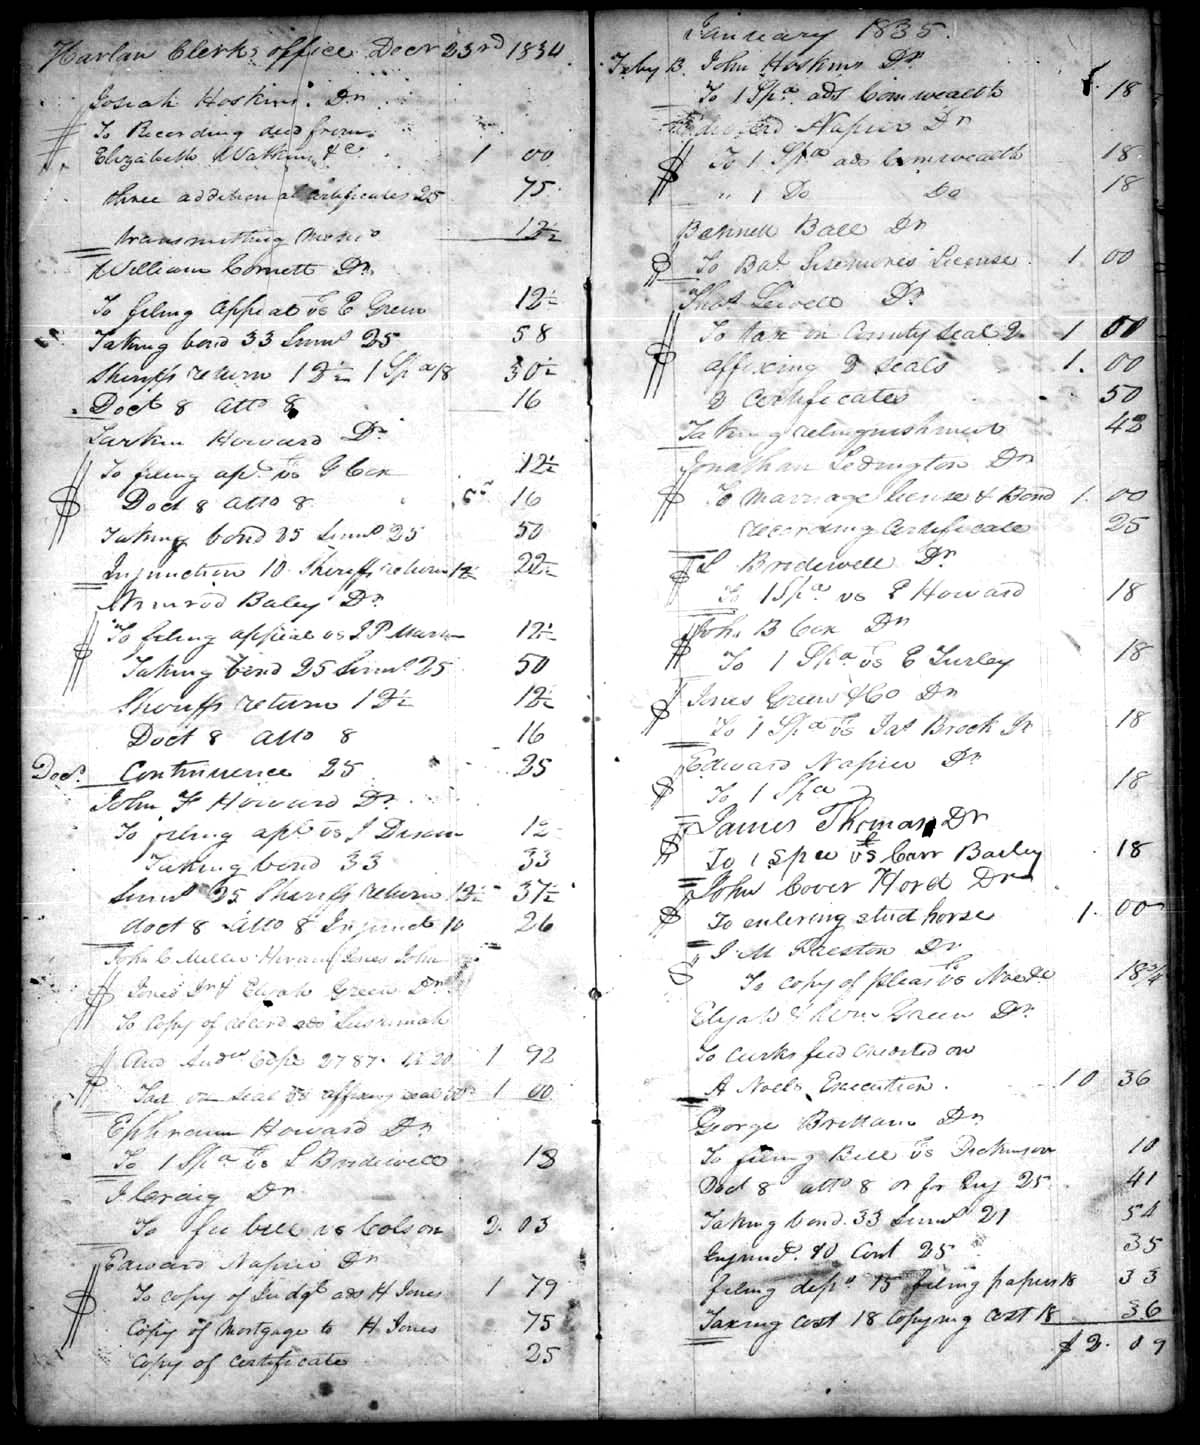 Harlan Clerks office Decr 23rd 1834
Josiah Hoskins Dr
To Recording deed from
Elizabeth Watkins &c 1 00
three additional certificates 25 75
transmitting memo 12½
William Cornett Dr
To filing appeal vs E Green 12½
Taking bond 33 Sums 25 58
Sheriffs return 12½ 1 Spa 18 30½
Doct 8 atto 8 16
Larkin Howard Dr
To filing apl vs G Cox 12½
Doct 8 atto 8 16
Taking bond 25 Sums 25 50
Injunction 10 Sheriffs return 12½ 22½
Nimrod Baley Dr
To filing appeal vs J P 12½
Taking bond 25 Sums 25 50
Sheriffs return 12½ 12½
Doct 8 atto 8 16
Docs. Continuence 25 25
John F Howard Dr
To filing apl vs J Dixon 12
Taking bond 33 33
Sums 25 Sheriffs return 12½ 37½
doct 8 atto 8 Injunct 10 26
John C Miller Hiram Jones John
Jones Jr & Elijah Green Dr
To copy of record ads
And 27 87 1 92
Tax on seal 50 affixing seal 50 1 00
Ephraim Howard Dr
To 1 Spa vs S Bridewell 18
J Craig Dr
To fee bill vs Colson 2. 03
Edward Napier Dr
To copy of Judgt ads H Jones 1 79
Copy of Mortgage to H Jones 75
Copy of certificate 25
January 1835.
John Hoskins Dr
To 1 Spa ads Comwealth 18
Edward Napier Dr
To 1 Spa ads Comwealth 18
" 1 Do Do 18
Bannett Ball Dr
To Bat License 1. 00
Thos Lewell Dr
To tax on County seal 2 1 00
affixing 2 seals 1. 00
2 certificates 50
Taking relinquishment 42
Jonathan Ledington Dr
To marriage license & Bond 1. 00
recording certificate 25
S Bridewell Dr
To 1 Spa vs E Howard 18
John B Cox Dr
To 1 Spa vs E Turley 18
Jones Green & Co Dr
To 1 Spa vs Jas Brock Jr 18
Edward Napier Dr
To 1 Spa 18
James Thomas Dr
To 1 Spa vs Carr Bailey 18
John Cover Hord Dr
To entering stud horse 1. 00
J. M Preston Dr
To copy of pleas vs Noele 18¾
Elijah & Wm Green Dr
To Clerks feed on
A Noels Execution. 10 36
George Brittain Dr
To filing Bill vs Dickinson 10
Doct 8 atto 8 or for Inj 25 41
Taking bond 33 Sums 21 54
Injunct. 10 Cont 25 35
filing depos 15 filing papers 18 33
Taxing cost 18 Copying cost 18 36
$ 2. 09